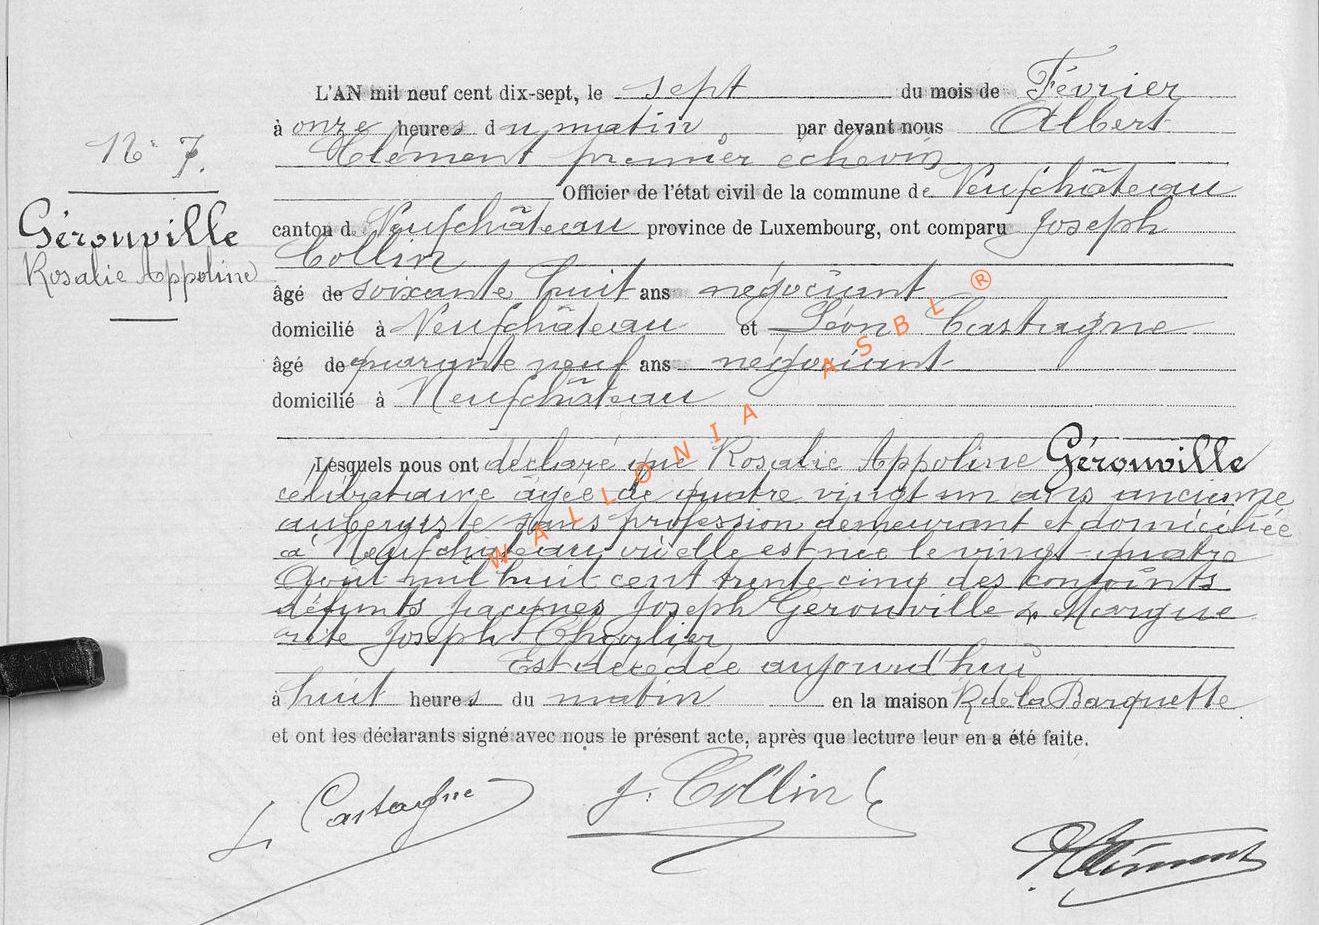 L'AN mil neuf cent dix-sept, le sept du mois de Février
à onze heures du matin par devant nous Albert
Clément premier échevin
Officier de l'état civil de la commune de Neufchâteau
canton de Neufchâteau province de Luxembourg, ont comparu Joseph
Collin
âgé de soixante huit ans négociant
domicilié à Neufchâteau et Léon Castagne
âgé de quarante neuf ans négociant
domicilié à Neufchâteau
N° 7.
Gérouville
Rosalie Appoline
Lesquels nous ont déclaré que Rosalie Appoline Gérouville
célibataire âgée de quatre vingt un ans ancienne
aubergiste sans profession demeurant et domiciliée
à Neufchâteau où elle est née le vingt-quatre
Août mil huit cent trente cinq des conjoints
défunts Jacques Joseph Gérouville & Margue
rite Joseph
Est décédée aujourd'hui
à huit heures du matin en la maison R de la Barquette
et ont les déclarants signé avec nous le présent acte, après que lecture leur en a été faite.
L. Castagne
J. Collin
Clément
WALLONIA ASBL ®